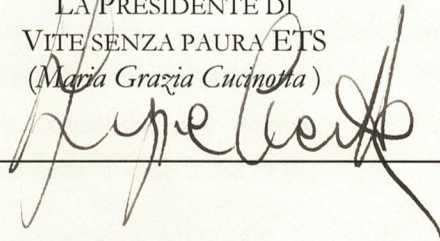 LA PRESIDENTE DI
VITE SENZA PAURA ETS
(Maria Grazia Cucinotta )